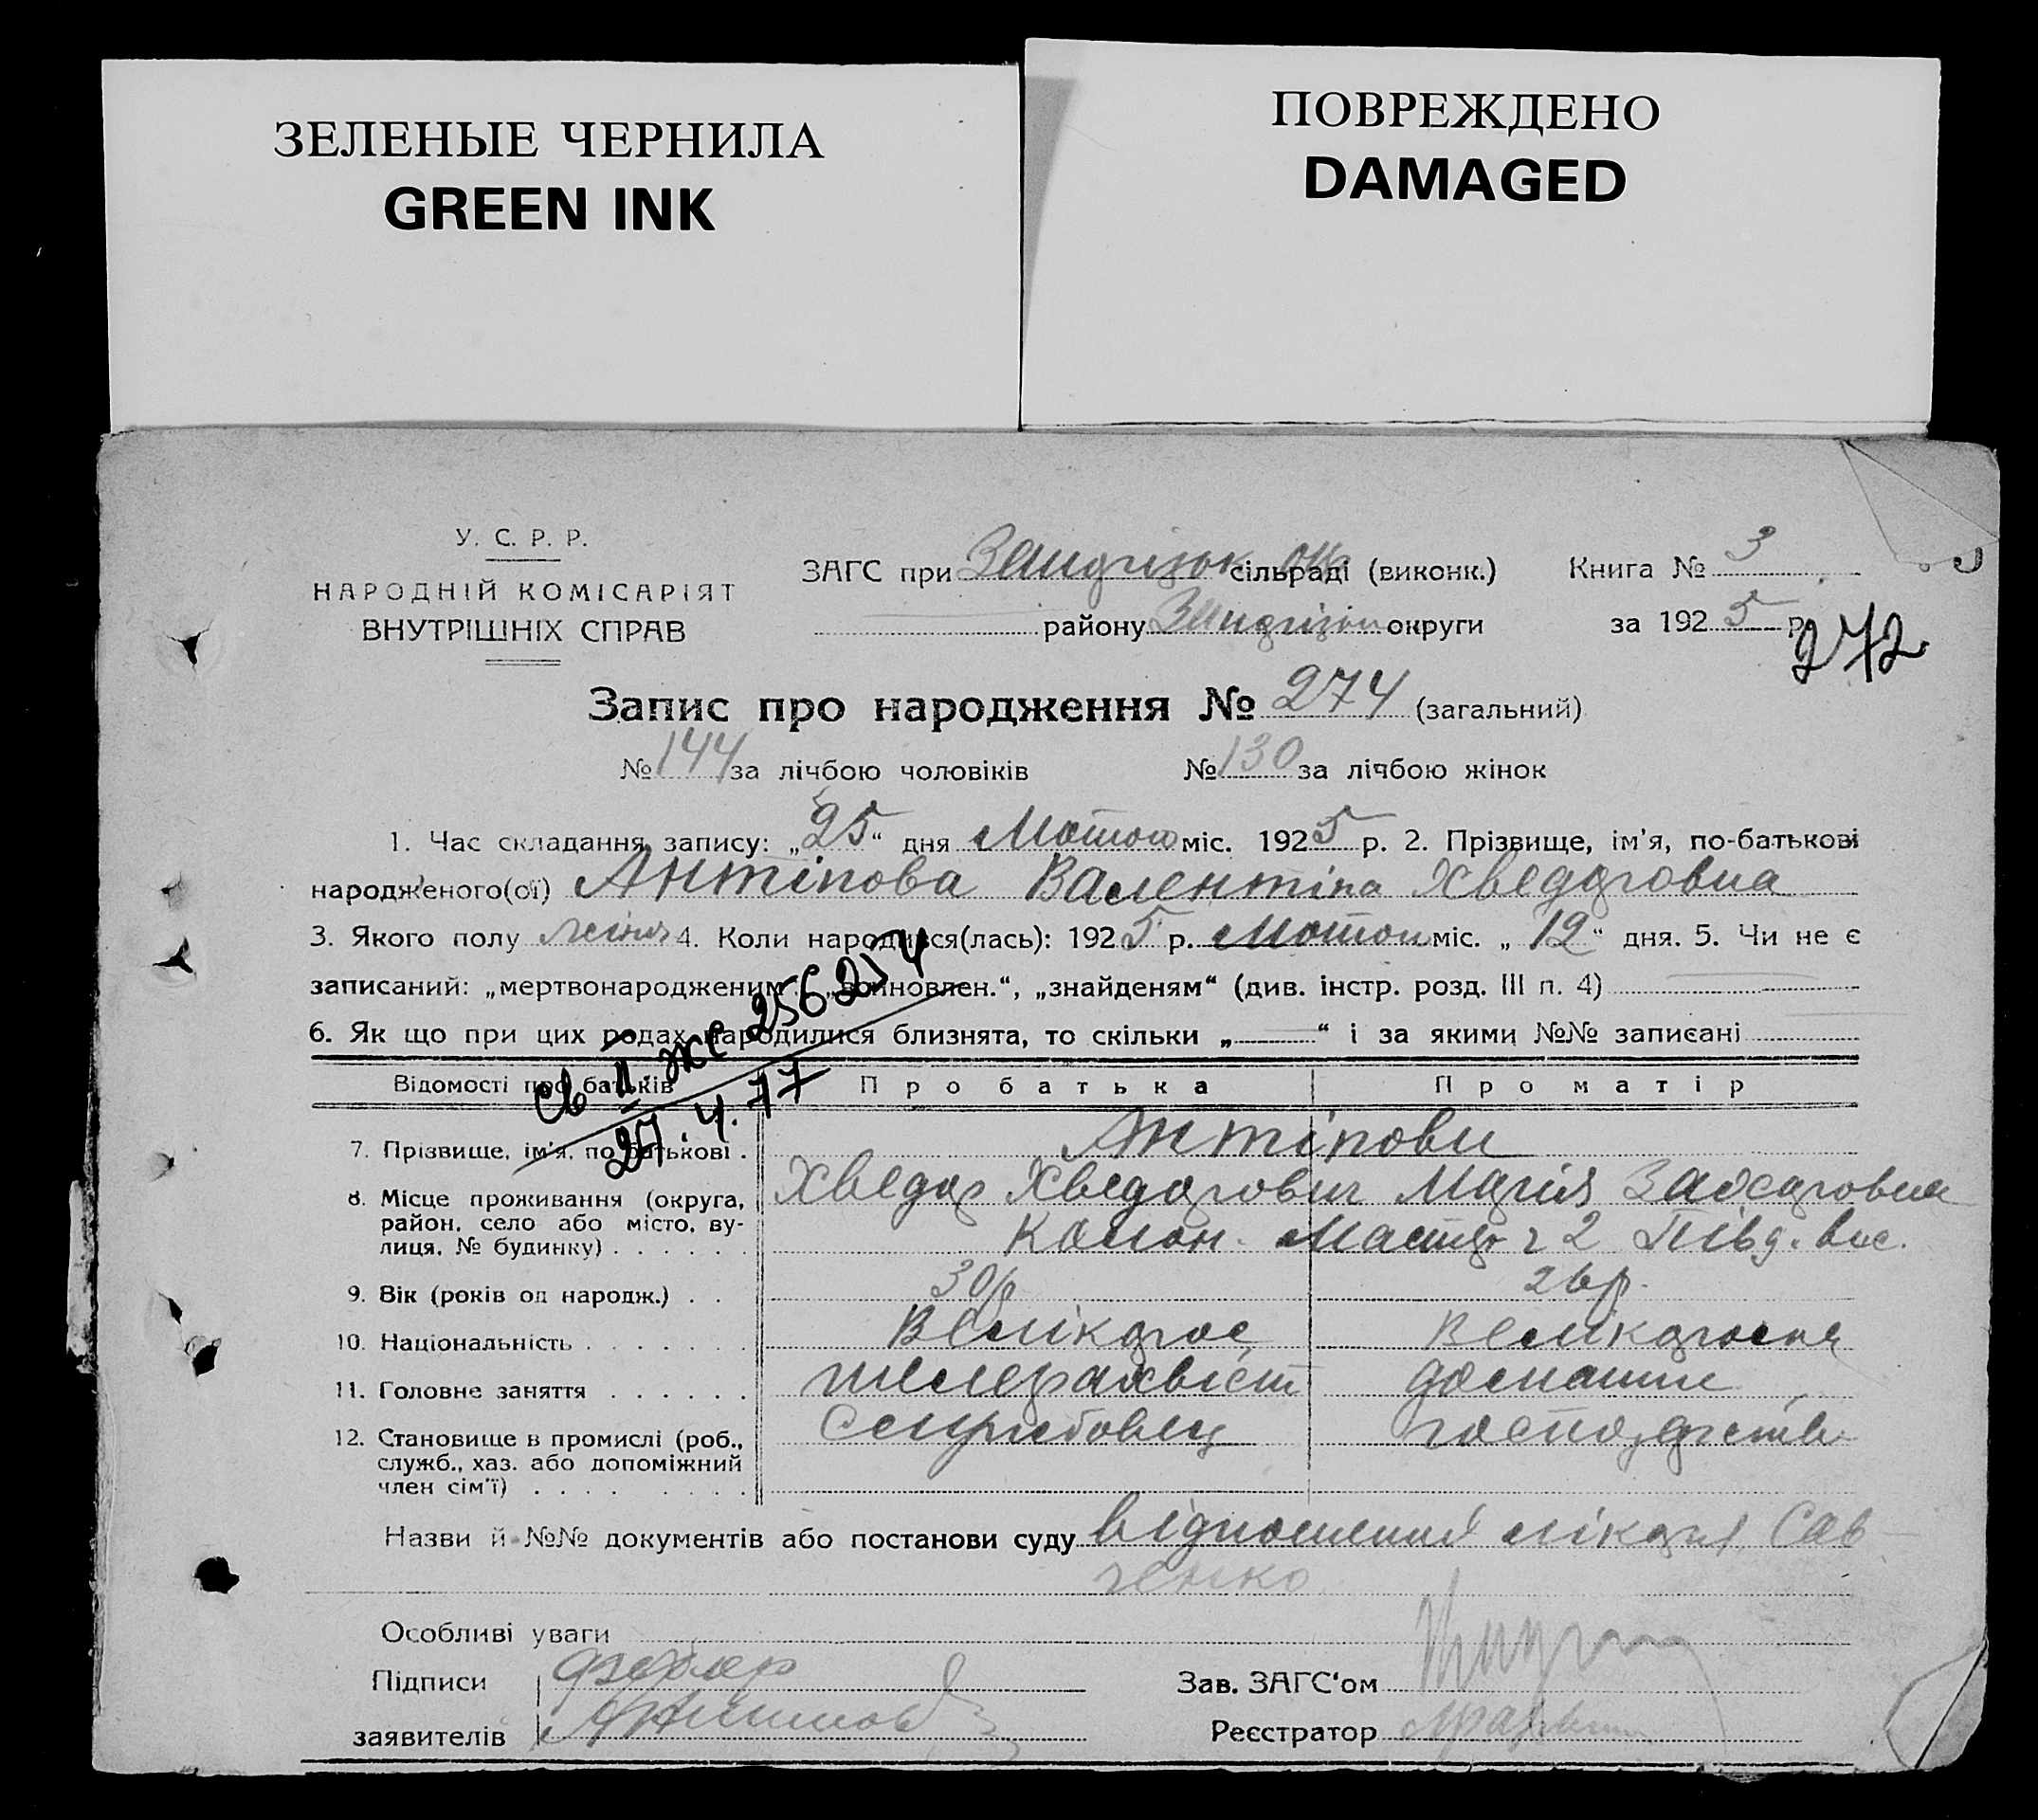 ЗЕЛЕНЫЕ ЧЕРНИЛА
GREEN INK
ПОВРЕЖДЕНО
DAMAGED
У. С. Р. Р.
НАРОДНІЙ КОМІСАРІЯТ
ВНУТРІШНІХ СПРАВ
ЗАГС при сільраді (виконк.)
району округи
Книга № 3
за 1925 р.
272
Запис про народження № 274 (загальний)
№ 144 за лічбою чоловіків № 130 за лічбою жінок
1. Час складання запису: „25“ дня Лютого міс. 1925 р. 2. Прізвище, ім'я, по-батькові
народженого(ої) Антіпова Валентіна Хведоровна
3. Якого полу жіноч 4. Коли народився(лась): 1925 р. Лютого міс. „12“ дня. 5. Чи не є
записаний: „мертвонародженим“, „войновлен.“, „знайденям“ (див. інстр. розд. III п. 4)
6. Як що при цих родах народилися близнята, то скільки „ “ і за якими №№ записані
св II жс 256254
27.4.77
Відомості про батьків Про батька Про матір
7. Прізвище, ім'я, по батькові . Антіпови
Хведор Хведорович Марія Захаровна
8. Місце проживання (округа,
район, село або місто, ву-
лиця, № будинку) . . . . . . Колон. 2 Півд. вис.
9. Вік (років од народж.) . . 30 р 26 р.
10. Національність . . . . . . . Велікорос Велікороска
11. Головне заняття . . . . . . телеграхвіст домашнє
12. Становище в промислі (роб.,
служб., хаз. або допоміжний
член сім'ї) . . . . . . . . . господарство
Назви й №№ документів або постанови суду відношення лікаря Сав
ченко
Особливі уваги
Підписи Федор
заявителів Антипов
Зав. ЗАГС'ом
Реєстратор